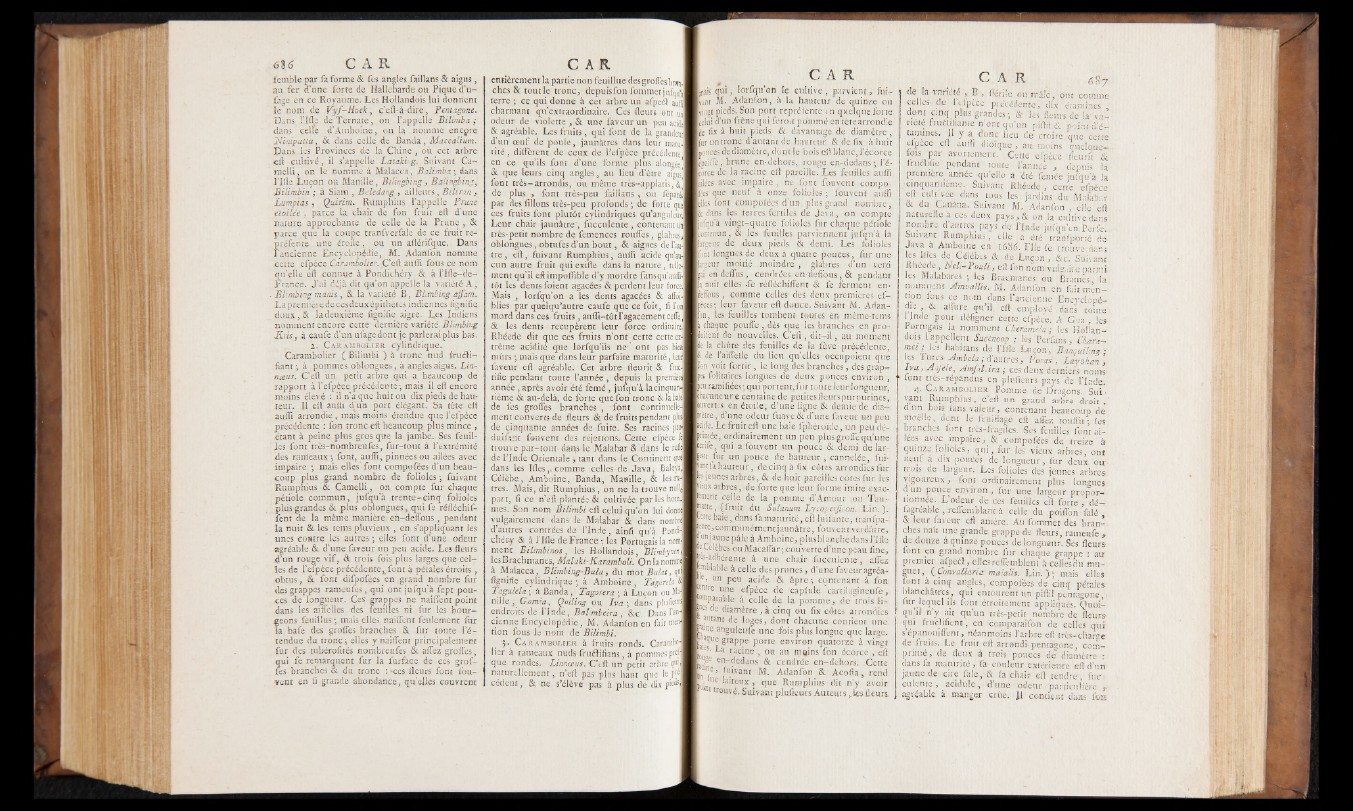 686 C A R
semble par sa forme & ses angles saillans & aigus,
au fer d'une sorte de Hallebarde ou Pique d'u-
sage en ce Royaume. Les Hollandois lui donnent
le nom de Vyf-Hoek, c'est-à-dire, Pentagone.
Dans l'Isle de Ternate, on l'appelle Bilimba;
dans celle d'Amboine, on la nomme encore
Nimpatsa, & dans celle de Banda, Marcallum.
Dans les Provinces de la Chine, où cet arbre
est cultivé, il s'appelle Lataking. Suivant Ca-
melli, on le nomme à Malacca, Balimba; dans
l'Isle Luçon ou Manille, Bilingbing, Balingbing,
Bilimbin; à Siam, Beledang, ailleurs, Biliron,
Lumptas, Quirim. Rumphius l'appelle Prune
étoilée, parce la chair de son fruit est d'une
nature approchante de celle de la Prune, &
parce que la coupe transversale de ce fruit re-
présente une étoile, ou un astérisque. Dans
l'ancienne Encyclopédie, M. Adanson nomme
cette espèce Carambolier. C'est aussi sous ce nom
qu'elle est connue à Pondichéry & à l'Isle-de-
France. J'ai déjà dit qu'on appelle la variété A,
Blimbing manis, & la variété B, Blimbing assam.
La première de ces deux épithètes indiennes signifie
doux, & la deuxième signifie aigre. Les Indiens
nomment encore cette dernière variété Blimbing
Kris, à cause d'un usage dont je parlerai plus bas.
2. CARAMBOLIER cylindrique.
Carambolier (Bilimbi) à tronc nud fructi-
fiant; à pommes oblongues, à angles aigus. Lin-
nœus. C'est un petit arbre qui a beaucoup de
rapport à l'espèce précédente; mais il est encore
moins élevé: il n'a que huit ou dix pieds de hau-
teur. Il est aussi d'un port élégant. Sa tête est
aussi arrondie, mais moins étendue que l'espèce
précédente: son tronc est beaucoup plus mince,
étant à peine plus gros que la jambe. Ses feuil-
les sont très-nombreuses, sur-tout à l'extrémité
des rameaux; sont, aussi, pinnées ou ailées avec
impaire; mais elles sont composées d'un beau-
coup plus grand nombre de folioles; suivant
Rumphius & Camelli, on compte sur chaque
pétiole commun, jusqu'à trente-cinq folioles
plus grandes & plus oblongues, qui se réfléchis-
sent de la même manière en-dessous, pendant
la nuit & les tems pluvieux, en s'appliquant les
unes contre les autres; elles sont d'une odeur
agréable & d'une saveur un peu acide. Les fleurs
d'un rouge vif, & trois fois plus larges que cel-
les de l'espèce précédente, sont à pétales étroits,
obtus, & sont disposées en grand nombre sur
des grappes rameuses, qui ont jusqu'à sept pou-
ces de longueur. Ces grappes ne naissent point
dans les aisselles des feuilles ni sur les bour-
geons feuillus; mais elles naissent seulement sur
la base des grosses branches & sur toute l'é-
tendue du tronc; elles y naissent principalement
sur des tubérosités nombreuses & assez grosses,
qui se remarquent sur la surface de ces gros-
ses branches & du tronc: ces fleurs sont sou-
vent en si grande abondance, qu'elles couvrent
C A R
entièrement la partie non feuillue des grosses bran-
ches & tout le tronc, depuis son sommet jusqu'à
terre; ce qui donne à cet arbre un aspect aussi
charmant qu'extraordinaire. Ces fleurs ont une
odeur de violette, & une saveur un peu acide
& agréable. Les fruits, qui sont de la grandeur
d'un œuf de poule, jaunâtres dans leur matu-
rité, diffèrent de ceux de l'espèce précédente,
en ce qu'ils sont d'une forme plus alongée,
& que leurs cinq angles, au lieu d'être aigus,
sont très-arrondis, ou même très-applatis, &
de plus, sont très-peu saillans, ou séparés
par des sillons très-peu profonds; de sorte que
ces fruits sont plutôt cylindriques qu'anguleux.
Leur chair jaunâtre, succulente, contenant un
très-petit nombre de semences rousses, glabres,
oblongues, obtuses d'un bout, & aigues de l'au-
tre, est, suivant Rumphius, aussi acide qu'au-
cun autre fruit qui existe dans la nature, telle-
ment qu'il est impossible d'y mordre sans qu'aussi-
tôt les dents soient agacées & perdent leur force.
Mais, lorsqu'on a les dents agacées & affoi-
blies par quelqu'autre cause que ce soit, si l'on
mord dans ces fruits, aussi-tôt l'agacement cesse,
& les dents recupèrent leur force ordinaire.
Rhéede dit que ces fruits n'ont cette cette ex-
trême acidité que lorsqu'ils ne sont pas bien
mûrs; mais que dans leur parfaite maturité, leur
saveur est agréable. Cet arbre fleurit & fruc-
tifie pendant toute l'année, depuis la première
année, après avoir été semé, jusqu'à la cinquan-
tième & au-delà, de sorte que son tronc & la base
de ses grosses branches, sont continuelle-
ment couverts de fleurs & de fruits pendant plus
de cinquante années de suite. Ses racines pro-
duisant souvent des rejettons. Cette espèce se
trouve par-tout dans le Malabar & dans le reste
de l'Inde Orientale, tant dans le Continent que
dans les Isles, comme celles de Java, Baleya,
Célèbe, Amboine, Banda, Manille, & les au-
tres. Mais, dit Rumphius, on ne la trouve nulle
part, si ce n'est plantée & cultivée par les hom-
mes. Son nom Bilimbi est celui qu'on lui donne
vulgairement dans le Malabar & dans nombre
d'autres contrées de l'Inde, ainsi qu'à Pondi-
chéry & à l'Isle de France: les Portugais la nom-
ment Bilimbinos, les Hollandois, Blimbynen,
les Brachmanes, Malaki-Karamboli. On la nomme
à Malacca, Blimbing-Bulu, du mot Bulat, qui
signifie cylindrique; à Amboine, Taguréla &
Tagulela; à Banda, Tagorera; à Luçon ou Ma-
nille, Gamia, Quiling ou Iva; dans plusieurs
endroits de l'Inde, Balimbeira, &c. Dans l'an-
cienne Encyclopédie, M. Adanson en fait men-
tion sous le nom de Bilimbi.
3. CARAMBOLIER à fruits ronds. Carambo-
lier à rameaux nuds fructifians, à pommes pres-
que rondes. Linnæus. C'est un petit arbre qui,
naturellement, n'est pas plus haut que le pré-
cédent, & ne s'élève pas à plus de dix pieds,
C A R
mais qui, lorsqu'on le cultive, parvient, sui-
vant M. Adanson, à la hauteur de quinze ou
vingt pieds. Son port représente en quelque sorte
celui d'un frêne qui seroit pommé en tête arrondie
de six à huit pieds & davantage de diamètre,
sur un tronc d'autant de hauteur & de six à huit
pouces de diamètre, dont le bois est blanc, l'écorce
épaisse, brune en-dehors, rouge en-dedans; l'é-
corce de la racine est pareille. Les feuilles aussi
ailées avec impaire, ne sont souvent compo-
sées que neuf à onze folioles; souvent aussi
elles sont composées d'un plus grand nombre,
& dans les terres fertiles de Java, on compte
jusqu'à vingt-quatre folioles sur chaque pétiole
commun, & les feuilles parviennent jusqu'à la
largeur de deux pieds & demi. Les folioles
sont longues de deux à quatre pouces, sur une
largeur moitié moindre, glabres d'un verd
gai en dessus, cendrées en-dessous, & pendant
la nuit elles se réfléchissent & se ferment en-
dessous, comme celles des deux premières es-
pèces; leur saveur est douce. Suivant M. Adan-
son, les feuilles tombent toutes en même-tems
à chaque pousse, dès que les branches en pro-
duisent de nouvelles. C'est, dit-il, au moment
de la chûte des feuilles de la sève précédente,
& de l'aisselle du lieu qu'elles occupoient que
l'on voit sortir, le long des branches, des grap-
pes solitaires longues de deux pouces environ,
peu ramifiées; qui portent, sur toute leur longueur,
chacune une centaine de petites fleurs purpurines,
ouvertes en étoile, d'une ligne & demie de dia-
mètre, d'une odeur suave & d'une saveur un peu
acide. Le fruit est une baie sphéroïde, un peu dé-
primée, ordinairement un peu plus grosse qu'une
cerise, qui a souvent un pouce & demi de lar-
geur sur un pouce de hauteur, cannelée, sui-
vant sa hauteur, de cinq à six côtes arrondies sur
les jeunes arbres, & de huit pareilles côtes sur les
vieux arbres, de sorte que leur forme imite exac-
tement celle de la pomme d'Amour ou To-
mate, (fruit du Solanum Lycopersicon. Lin.).
Cette baie, dans sa maturité, est luisante, transpa-
rente, communément jaunâtre, souvent verdâtre,
d'un jaune pâle à Amboine, plus blanche dans l'Isle
de Célèbes ou Macassar; couverte d'une peau fine,
très-adhérente à une chair succulente, assez
semblable à celle des prunes, d'une saveur agréa-
ble, un peu acide & âpre; contenant à son
centre une espèce de capsule cartilagineuse,
comparable à celle de la pomme, de trois li-
gnes de diamètre, à cinq ou six côtes arrondies
& autant de loges, dont chacune contient une
graine anguleuse une fois plus longue que large.
Chaque grappe porte environ quatorze à vingt
baies. La racine, ou au moins son écorce, est
rouge en-dedans & cendrée en-dehors. Cette
racine, suivant M. Adanson & Acosta, rend
un suc laiteux, que Rumphius dit n'y avoir
point trouvé. Suivant plusieurs Auteurs, les fleurs
C A R 687
de la variété, B, stérile ou mâle, ont comme
celles de l'espèce précédente, dix étamines,
dont cinq plus grandes; & les fleurs de la va-
riété fructifiante n'ont qu'un pistil & point d'é-
tamines. Il y a donc lieu de croire que cette
espèce est aussi dioique, au moins quelque-
fois par avortement. Cette espèce fleurit &
fructifie pendant toute l'année, depuis la
première année qu'elle a été semée jusqu'à la
cinquantième. Suivant Rhéede, cette espèce
est cultivée dans tous les jardins du Malabar
& du Canara. Suivant M. Adanson, elle est
naturelle à ces deux pays, & on la cultive dans
nombre d'autres pays de l'Inde jusqu'en Perse.
Suivant Rumphius, elle a été transporté de
Java à Amboine en 1686. Elle se trouve dans
les Isles de Célèbes & de Luçon, &c. Suivant
Rhéede, Neli-Pouli, est son nom vulgaire parmi
les Malabares; les Bracmanes ou Brames, la
nomment Aroualis. M. Adanson en fait men-
tion sous ce nom dans l'ancienne Encyclopé-
die, & assure qu'il est employé dans toute
l'Inde pour désigner cette espèce. A Goa, les
Portugais la nomment Cheramela; les Hollan-
dois l'appellent Suerknop; les Persans, Chara-
mei; les habitans de l'Isle Luçon, Banquiling;
les Turcs Ambela; d'autres, Poras, Layohan,
Iva, Ayele, Amsal-ira; ces deux derniers noms
sont très-répandus en plusieurs pays de l'Inde.
4. CARAMBOLIER Pomme de Dragons. Sui-
vant Rumphius, c'est un grand arbre droit,
d'un bois sans valeur, contenant beaucoup de
moëlle, dont le feuillage est assez touffu; ses
branches sont très-fragiles. Ses feuilles sont ai-
lées avec impaire, & composées de treize à
quinze folioles, qui, sur les vieux arbres, ont
neuf à dix pouces de longueur, sur deux ou
trois de largeur. Les folioles des jeunes arbres
vigoureux, sont ordinairement plus longues
d'un pouce environ, sur une largeur propor-
tionnée. L'odeur de ces feuilles est forte, dé-
sagréable, ressemblant à celle du poisson salé,
& leur saveur est amère. Au sommet des bran-
ches naît une grande grappe de fleurs, rameuse,
de douze à quinze pouces de longueur. Ses fleurs
sont en grand nombre sur chaque grappe: au
premier aspect, elles ressemblent à celles du mu-
guet, (Convallaria maïalis. Lin.); mais elles
sont à cinq angles, composées de cinq pétales
blanchâtres, qui entourent un pistil pentagone,
sur lequel ils sont étroitement appliqués. Quoi-
qu'il n'y ait qu'un très-petit nombre de fleurs
qui fructifient, en comparaison de celles qui
s'épanouissent, néanmoins l'arbre est très-chargé
de fruits. Le fruit est arrondi pentagone, com-
primé, de deux à trois pouces de diamètre:
dans sa maturité, sa couleur extérieure est d'un
jaune de cire sale, & sa chair est tendre, suc-
culente, acidule, d'une odeur particulière,
agréable à manger crûe. Il contient dans son